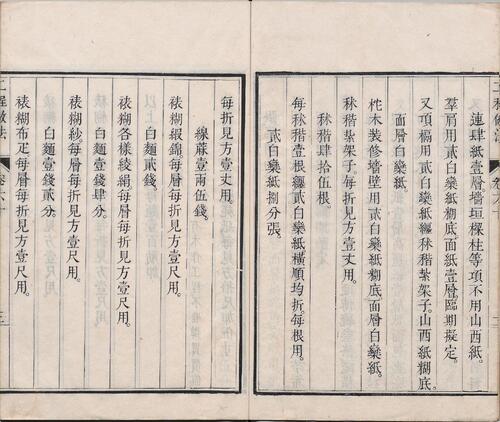 連肆紙壹層墻垣樑柱等項不用山西紙。
羣肩用貳白欒紙糊底面紙壹層臨期擬定。
又頂槅用貳白欒紙纏秫稭紮架子。山西紙糊底。
面層白欒紙。
杉木裝修墻壁用貳白欒紙糊底。面層白欒紙。
秫稭紮架子。每折見方壹丈用。
秫稭肆拾伍根。
每秫稭壹根纏貳白欒紙橫順均折。每根用。
貳白欒紙捌分張。
每折見方壹丈用。
線蔴壹兩伍錢。
裱糊緞錦每層每折見方壹尺用。
白麵貳錢。
裱糊各樣綾絹每層每折見方壹尺用。
白麵壹錢肆分。
裱糊紗每層每折見方壹尺用。
白麵壹錢貳分。
裱糊布疋每層每折見方壹尺用。
工程做法 卷六十 三